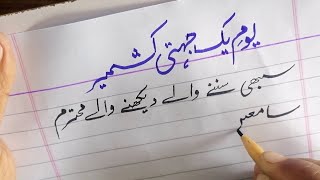 یوم یک جہتی کشمیر
سبھی سننے والے دیکھنے والے محترم
سامعین